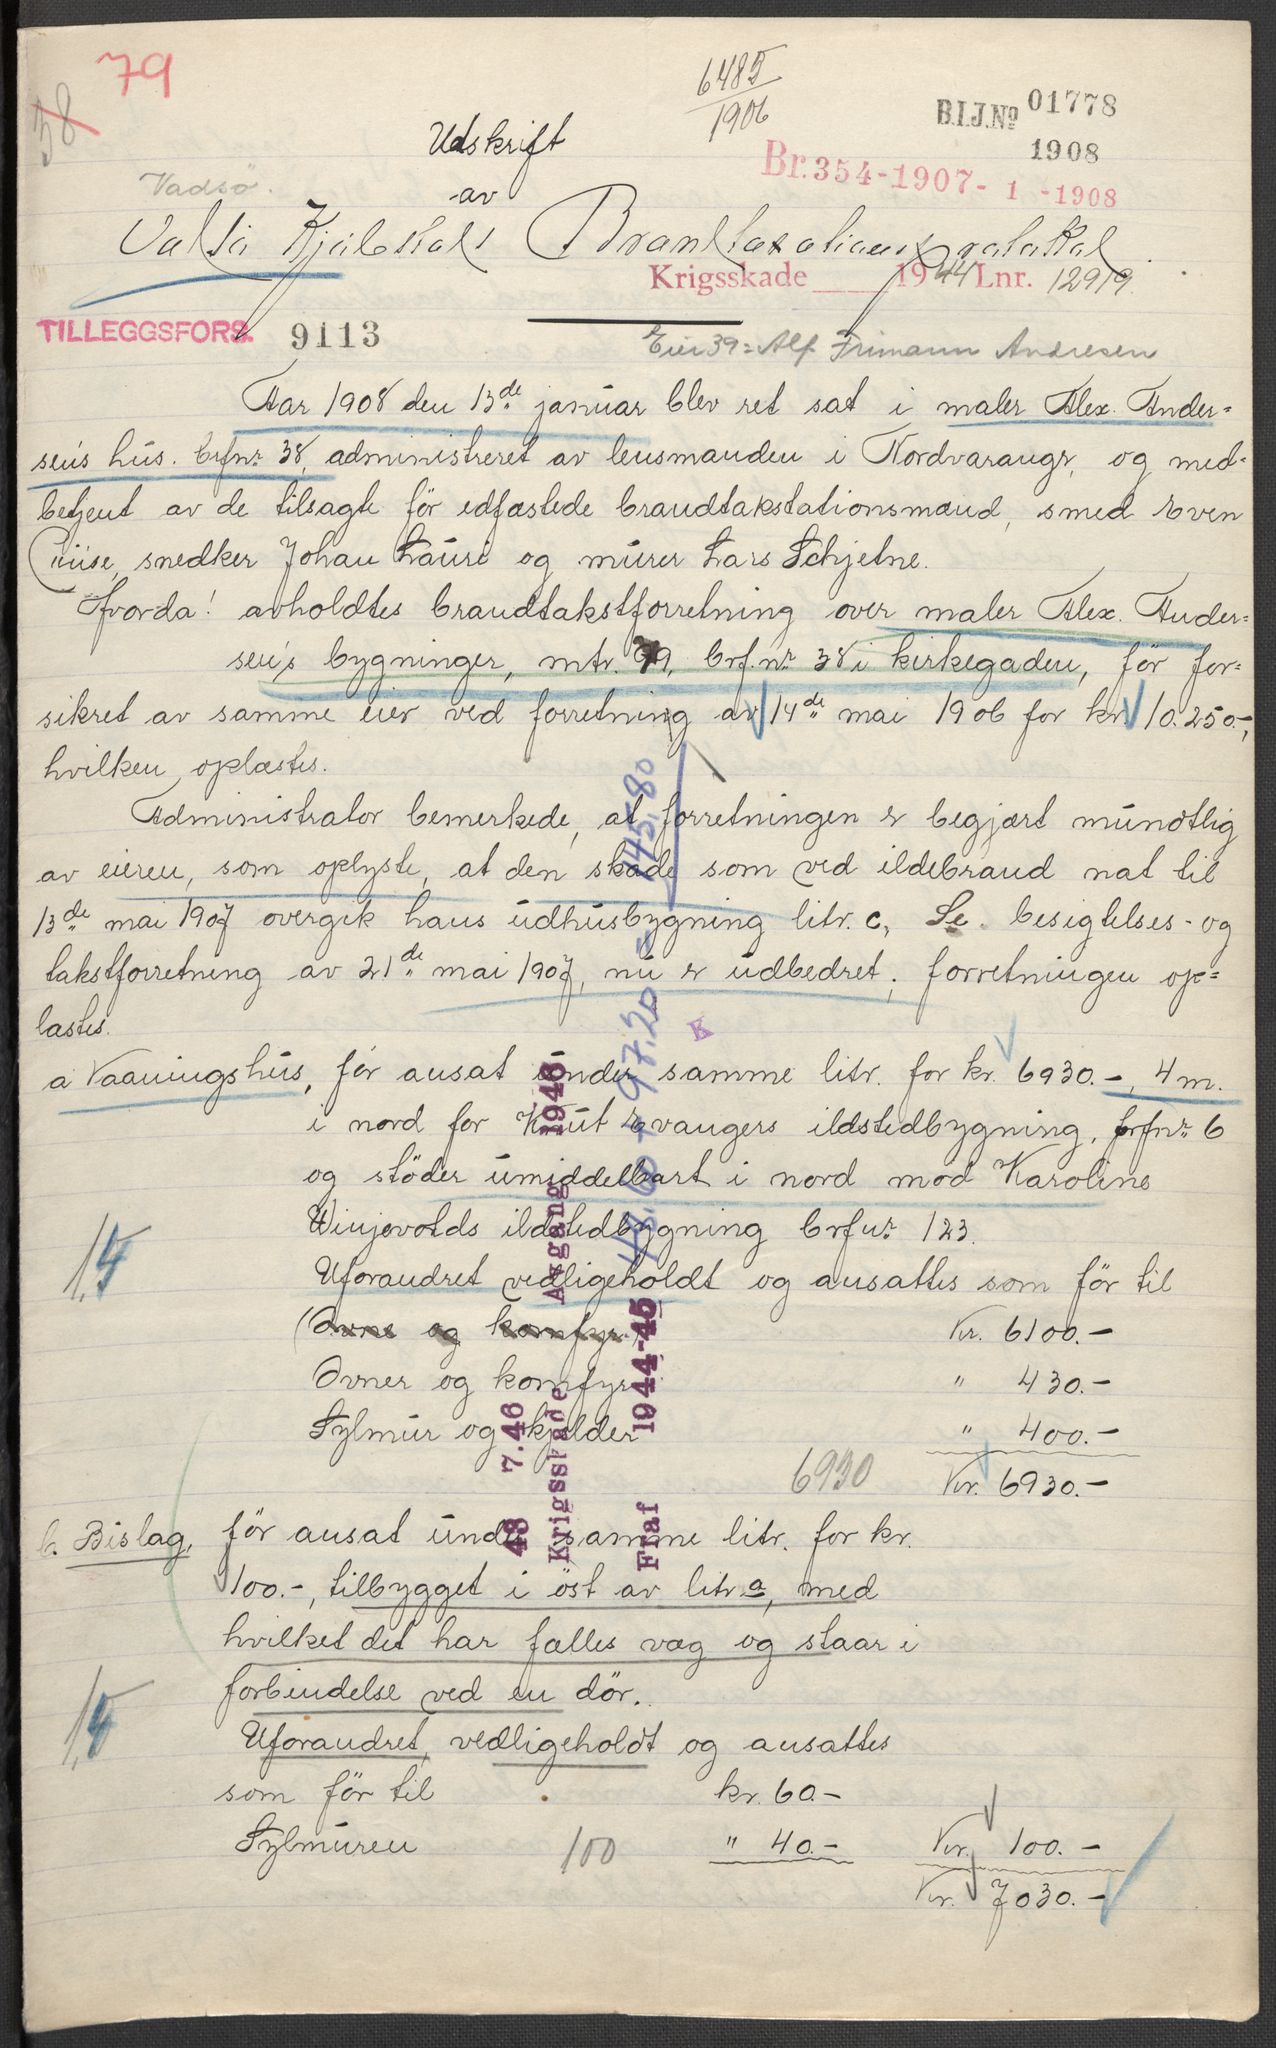 79
38
6485
1906
B.I.J.No 01778
1908
Br. 354-1907- 1 -1908
Udskrift
Vadsö.
av
Valsö Kjöbstads Branttaxationsprotokol.
Krigsskade 1944 Lnr. 12919.
TILLEGGSFORS. 9113
Eier 39 = Alf Frimann Andresen
Aar 1908 den 13de januar blev ret sat i maler Alex. Ander-
sen's hus. brfnr. 38, administreret av lensmanden i Nordvaranger, og med-
betjent av de tilsagte før edfæstede brandtakstationsmænd, smed Even
Giise, snedker Johan Lauri og murer Lars Schjetne.
Hvorda! avholdtes brandtakstforretning over maler Alex. Ander-
sen's bygninger, mtr. 79, brf.nr. 38 i kirkegaden, för for-
sikret av samme eier ved forretning av 14de mai 1906 for kr. 10.250.-,
hvilken oplæstes.
Administrator bemerkede, at forretningen er begjært mundtlig
av eieren, som oplyste, at den skade som ved ildebrand nat til
13de mai 1907 overgik hans udhusbygning litr. c, Se. besigtelses- og
takstforretning av 21de mai 1907, nu er udbedret; forretningen op-
læstes.
a Vaaningshus, för ansat under samme litr. for kr. 6930.-, 4 m.
i nord for Knut Evangers ildstedbygning, brfnr. 6
og stöder umiddelbart i nord mod Karoline
Winjevolds ildstedbygning brfnr. 123.
1,5
Uforandret vedligeholdt og ansattes som för til
(Ovne og komfyr) Kr. 6100.-
Ovner og komfyr " 430.-
Sylmur og kjelder " 400.-
6930 Kr. 6930.-
b. Bislag, för ansat under samme litr. for kr.
100.-, tilbygget i öst av litr a, med
hvilket det har fælles væg og staar i
forbindelse ved en dör.
1,5
Uforandret, vedligeholdt og ansattes
som för til kr. 60.-
Sylmuren 100 " 40.- Kr. 100.-
Kr. 7030.-
43 7.46
Krigsskade Avgang 1946
Fraf 1944-45 48,60 + 97,20 = 145,80
K